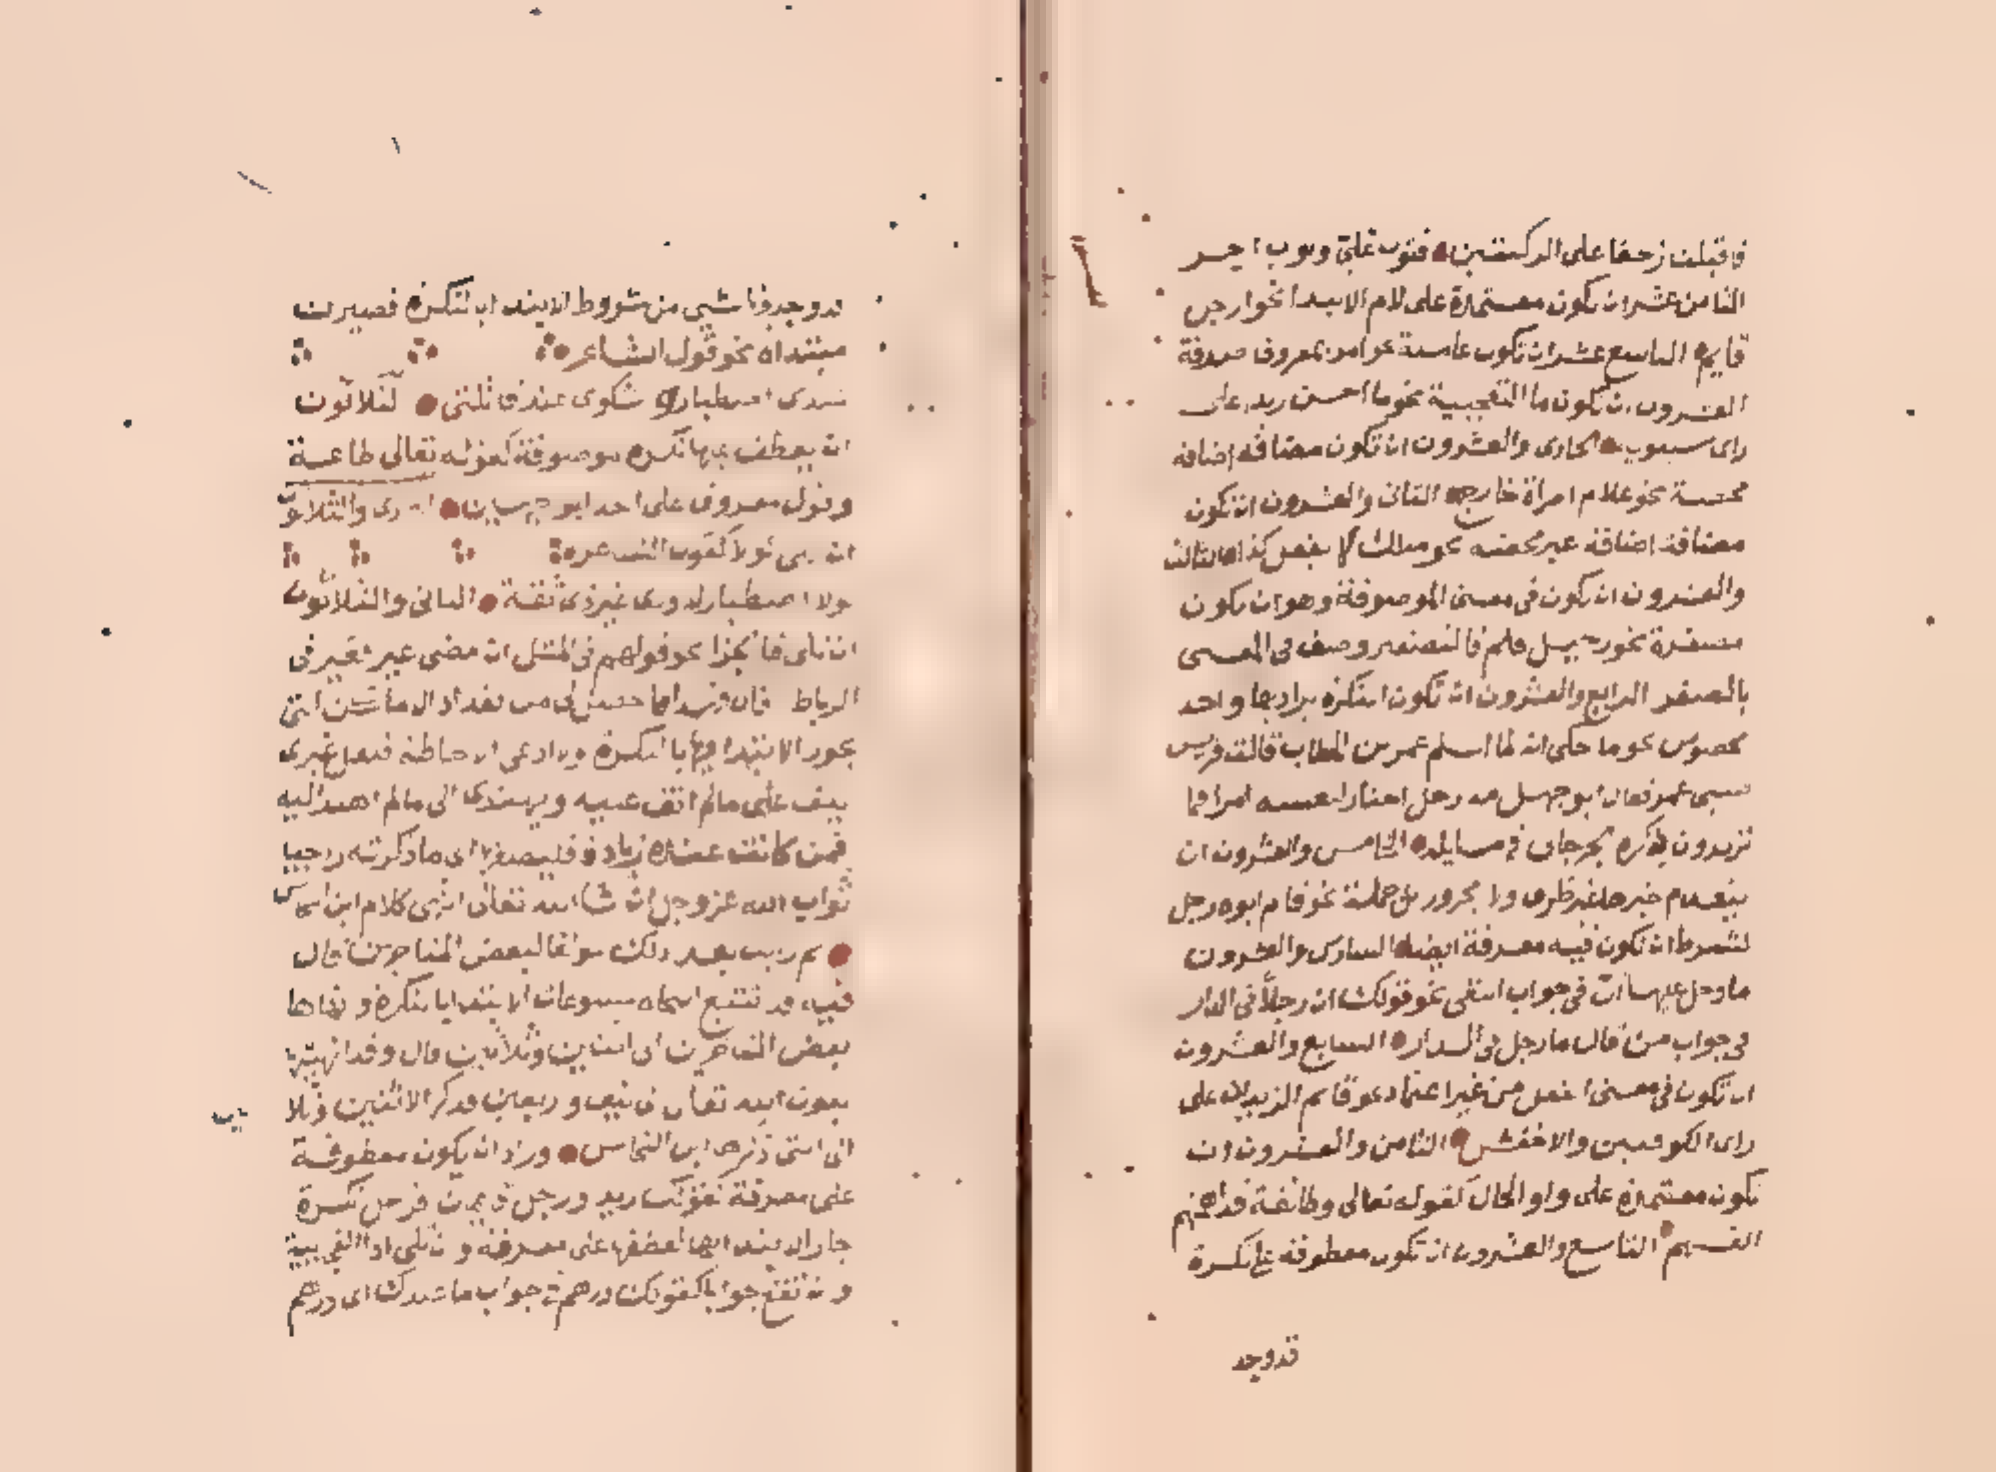 فاقبلت زحفا على الركبتين فثوب علي وثوب اجر
الثامن عشر ان تكون معتمدة على لام الابتدا نحو لرجل
قايم التاسع عشر ان تكون عاملة نحو امر بمعروف صدقة
العشرون ان تكون ما التعجبية نحو ما احسن زيد على
راى سيبويه الحادى والعشرون ان تكون مضافة اضافة
محضة نحو غلام امراة خارج الثانى والعشرون ان تكون
مضافة اضافة غير محضة نحو مثلك لا يفعل كذا الثالث
والعشرون ان تكون فى معنى الموصوفة وهو ان تكون
مصغرة نحو رجيل قايم فالتصغير وصف فى المعنى
بالصغر الرابع والعشرون ان تكون النكرة يراد بها واحد
مخصوص نحو ما حكى انه لما اسلم عمر بن الخطاب قالت قريش
عمر فقال ابو جهل مه رجل اختار لنفسه امرا فما
تريدون ذكره الجرجانى فى مسايله الخامس والعشرون ان
يتقدم خبرها غير ظرف ولا مجرور بل جملة نحو قام ابوه رجل
بشرط ان تكون فيه معرفة ايضا السادس والعشرون
ما دخل عليها ان فى جواب النفى نحو قولك ان رجلا فى الدار
فى جواب من قال ما رجل فى الدار السابع والعشرون
ان تكون فى معنى الفعل من غير اعتماد نحو قايم الزيدان على
راى الكوفيين والاخفش الثامن والعشرون ان
تكون معتمدة على واو الحال كقوله تعالى وطائفة قد اهمتهم
انفسهم التاسع والعشرون ان تكون معطوفة على نكرة
قد وجد
قد وجد فيها شيى من شروط الابتدا بالنكرة فصيرت
مبتداه نحو قول الشاعر
عندى اصطبار وشكوى عند قاتلتى الثلاثون
ان يعطف عليها نكرة موصوفة كقوله تعالى طاعة
وقول معروف على احد الوجهين الحادى والثلاثون
ان تلى لولا كقول الشاعر
لولا اصطبار لاودى كل ذى مقة الثانى والثلاثون
ان تلى فا الجزا نحو قولهم فى المثل ان مضى عير فعير فى
الرباط فان هذا ما حصل لى من تعداد الاماكن التى
يجوز الابتدا فيها بالنكرة ولا ادعى الاحاطة فلعل غيرى
يقف على مالم اقف عليه ويهتدى الى مالم اهتد اليه
فمن كانت عنده زيادة فليضفها الى ما ذكرته راجيا
ثواب الله عز وجل ان شا الله تعالى انتهى كلام ابن النحاس
ثم رايت بعد ذلك مولفا لبعض المتاخرين قال
فيه قد تتبع النحاة مسوغات الابتدا بالنكرة وانهاها
بعض المتاخرين الى اثنين وثلاثين قال وقد انهيتها
بعون الله تعالى الى نيف واربعين فذكر الاثنين وثلا
ثين
التى ذكرها ابن النحاس وزاد ان يكون معطوفة
على معرفة كقولك زيد ورجل قايمان فرجل نكرة
جاز الابتدا بها لعطفها على معرفة وان تلى اذا الفجاية
وان تقع جوابا كقولك درهم فى جواب ما عندك اى درهم